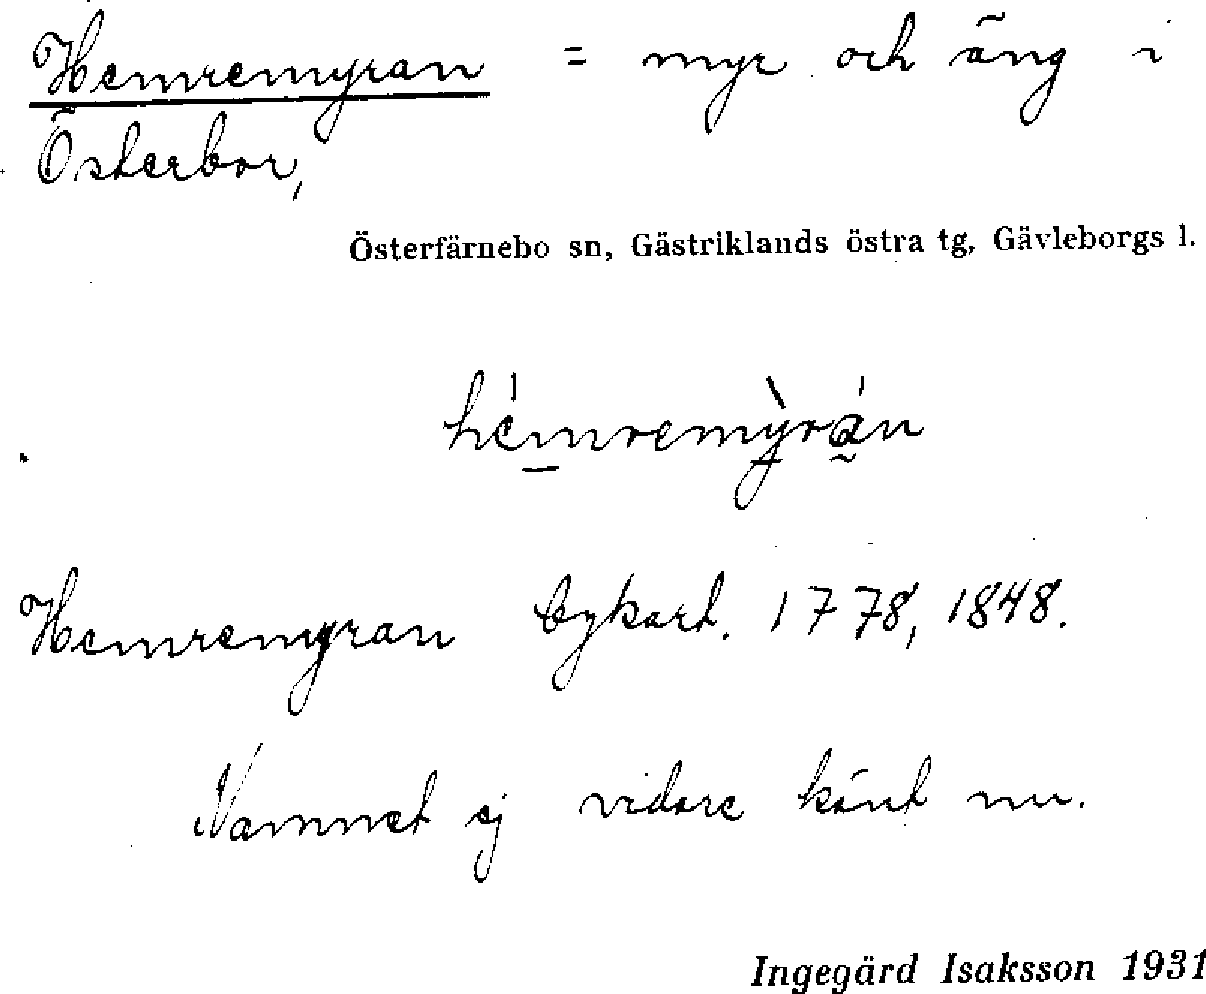 Hemremyran = myr och äng i
Österbor,
Österfärnebo sn, Gästriklands östra tg, Gävleborgs l.
hémremỳrán
Hemremyran bykart. 1778, 1848.
Namnet ej vidare känt nu.
Ingegärd Isaksson 1931